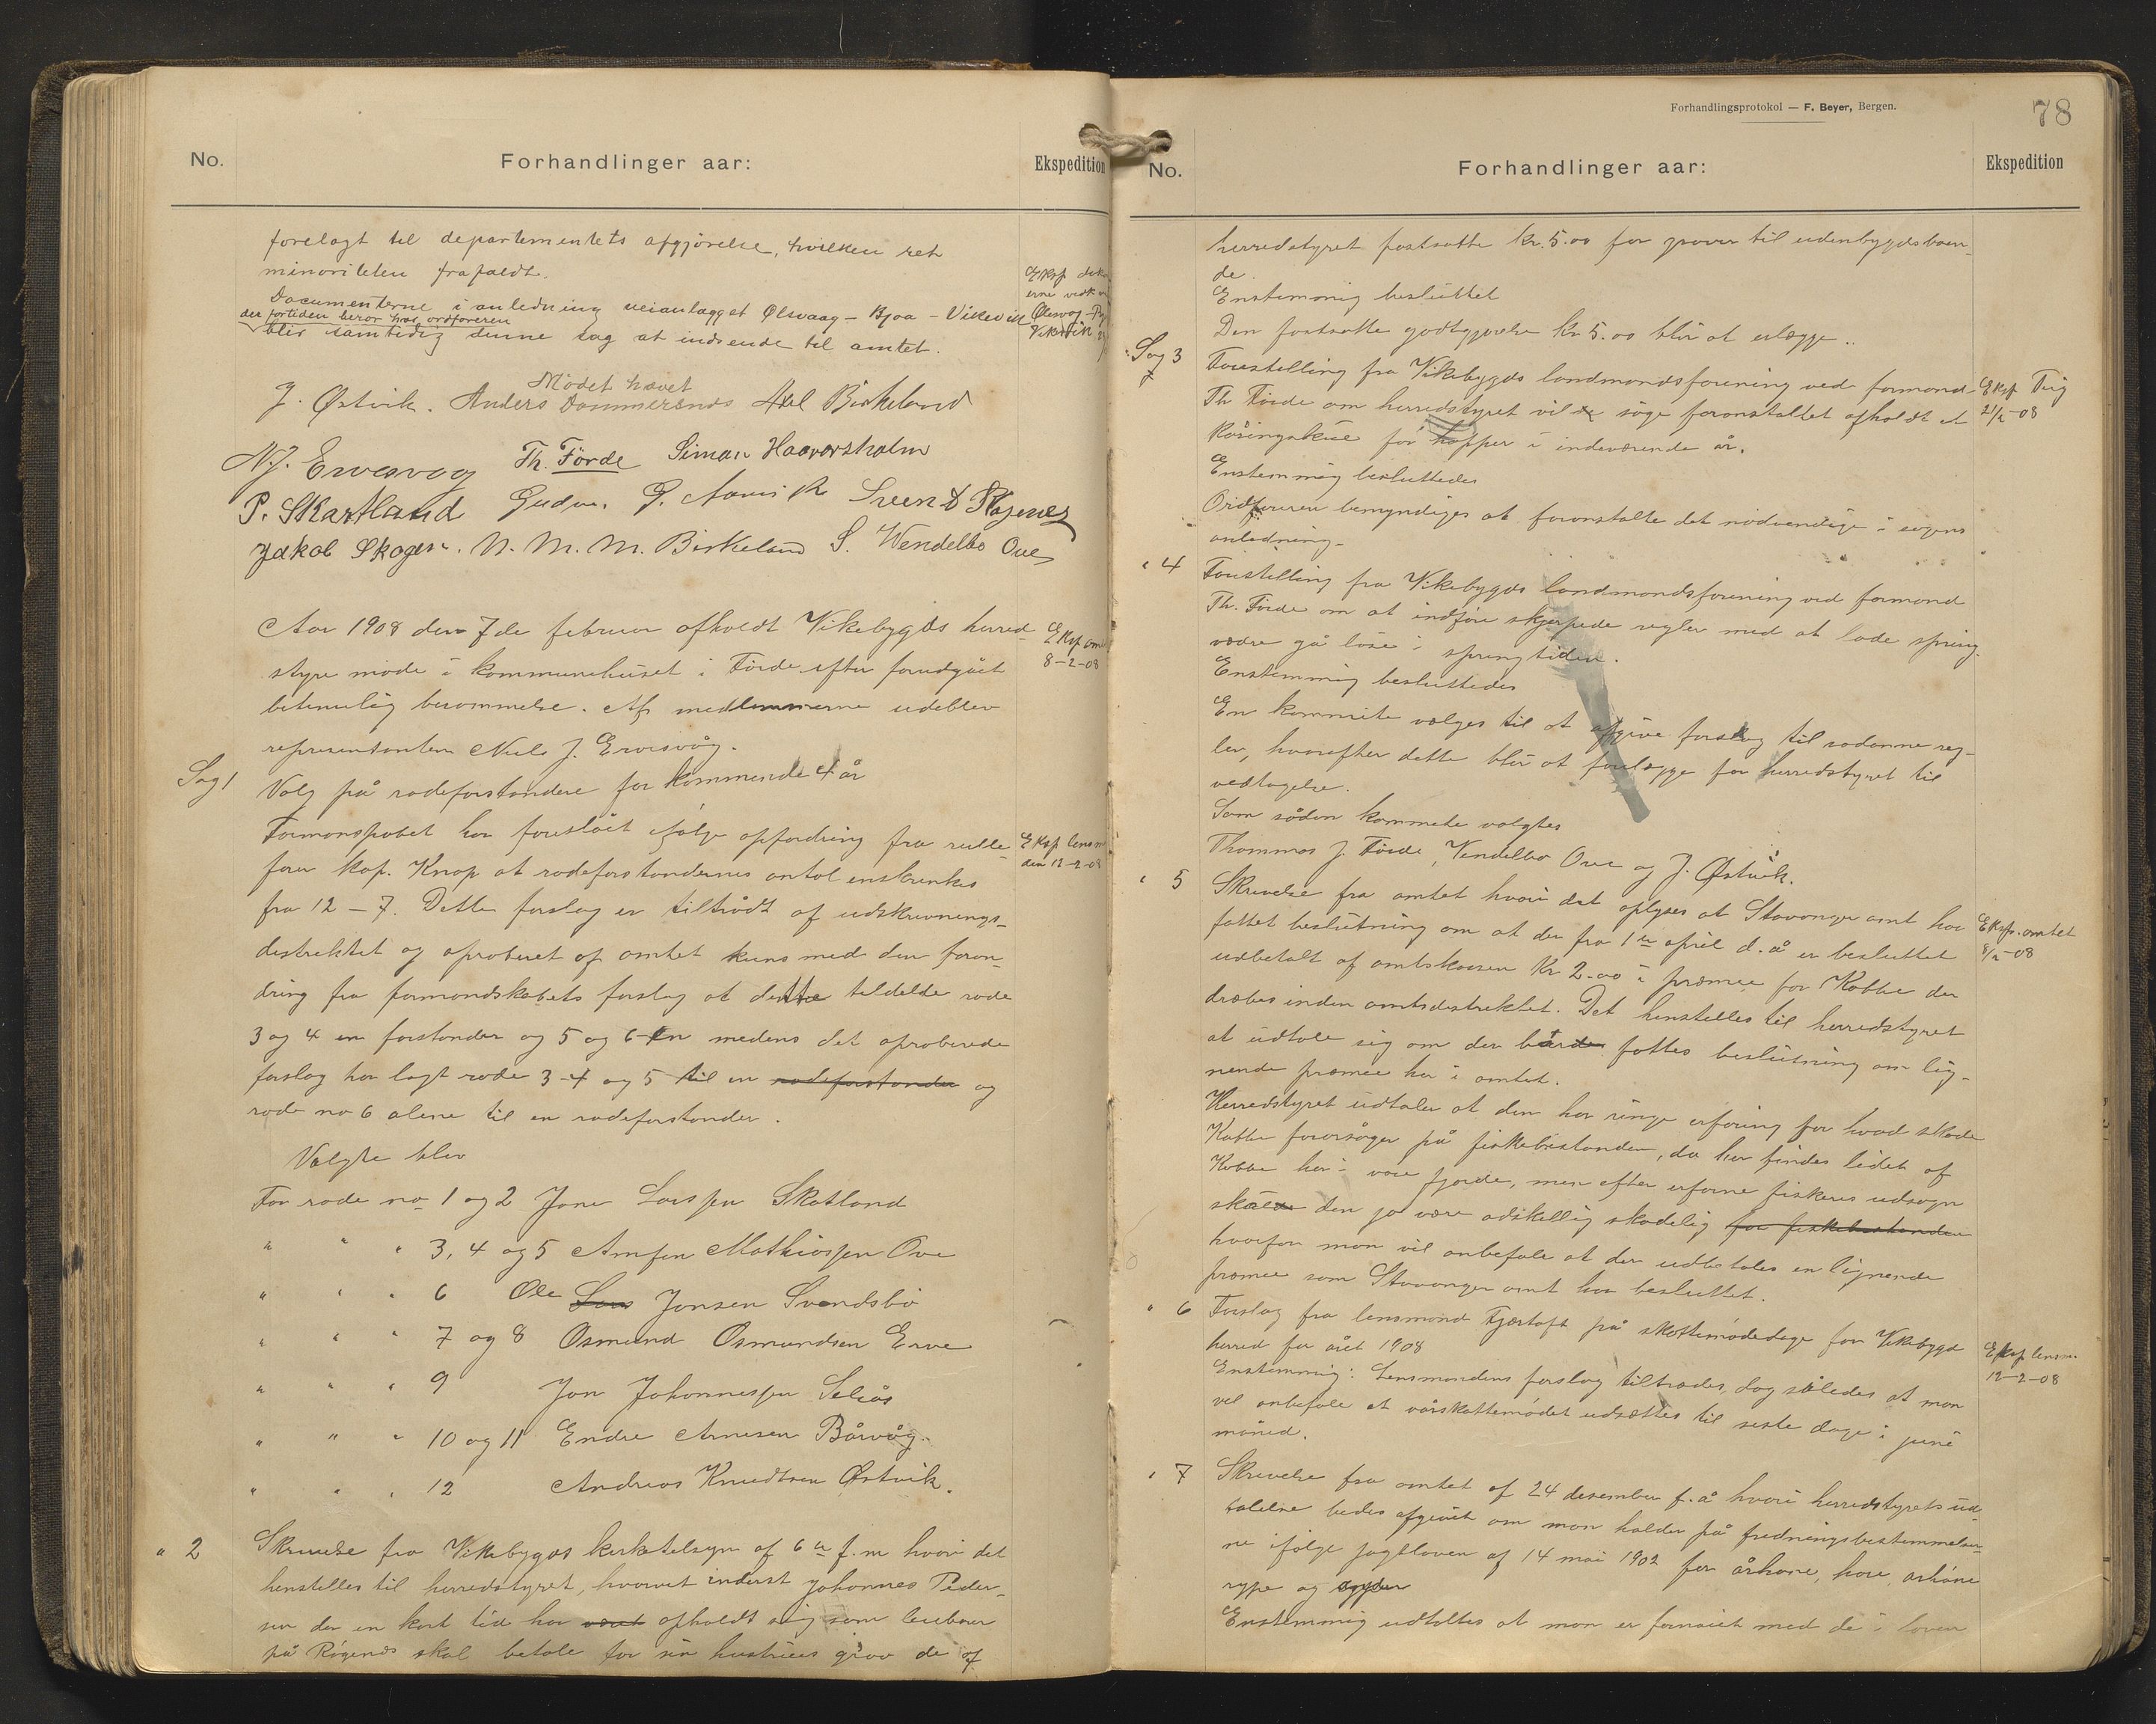 No.
Forhandlinger aar:
Ekspedition
forelagt til departementets afgjörelse, hvilken ret
minoriteten frafaldt.
Documenterne i anledning veianlægget Ølsvaag – Bjoa – Vikevik
der fortiden beror hos ordföreren
blir samtidig denne sag at indsende til amtet.
Ølsvog
Vikevik
Mödet hævet
J. Østvik. Anders Axel Birkeland
N. J. Ervesvog Th. Förde Simon Haavarsholm
P. Skartland Gudm. G. Svend
Jakob Skogen. N. M. M. Birkeland S. Wendelbo Ove
Aar 1908 den 7de februar afholdt Vikebygds herred-
styre möde i kommunehuset i Förde efter forudgået
betimelig berammelse. Af medlemmerne udeblev
representanten Niels J. Ervesvåg.
Eksp amtet
8-2-08
Sag 1
Valg på rodeforstandere for kommende 4 år
Formanskabet har foreslået ifölge opfordring fra rulle-
förer kap. Knap at rodeforstandernes antal enskrenkes
fra 12 – 7. Dette forslag er tiltrådt af udskrivnings-
destriktet og aproberet af amtet kuns med den foran-
dring fra formandskabets forslag at dette tildelte rode
3 og 4 en forstander og 5 og 6 en medens det aproberede
forslag har lagt rode 3-4 og 5 til en rodeforstander og
rode no 6 alene til en rodeforstander.
Eksp lensm
den 12-2-08
Valgte blev
For rode no 1 og 2 Jone Larssen Skatland
" " " 3, 4 og 5 Amfin Mathiassen Ove
" " " 6 Ole Lars Jonsen Svendsbö
" " " 7 og 8 Osmund Osmundsen Erve
" " " 9 Jon Johannessen Selsås
" " " 10 og 11 Endre Arnesen Bårvåg.
" " " 12 Andreas Knudtsen Østvik.
" 2
Skrivelse fra Vikebygds kirketilsyn af 6te f.m hvori det
henstilles til herredstyret, hvorvit inderst Johannes Peder-
sen der en kort tid har været opholdt sig som leiebour
på Röyenes skal betale for sin hustrues grav de af
Forhandlingsprotokol — F. Beyer, Bergen.
78
No.
Forhandlinger aar:
Ekspedition
herredstyret fastsatte kr. 5.00 for graver til udenbygdsboen-
de.
Enstemmig besluttet
Den fastsatte godtgjörelse kr 5.00 blir at erlægge.
Sag 3
Forestilling fra Vikebygds landmandsforening ved formand
Th Förde om herredstyret vil söge foranstaltet afholdt et
Kåringsskue for hopper i indeværende år.
Enstemmig besluttedes
Ordföreren bemyndiges at foranstalte det nödvendige i sagens
anledning.
Eksp
21/2-08
" 4
Forestilling fra Vikebygds landmandsforening ved formand
Th. Förde om at indföre skjærpede regler med at lade spring-
vædre gå löse i springtiden.
Enstemmig besluttedes
En kommite vælges til at afgive forslag til sådanne reg-
ler, hvorefter dette blir at forelægge for herredstyret til
vedtagelse.
Som sådan kommete valgtes
Thommas J. Förde, Vendelbo Ove og J. Østvik.
" 5
Skrivelse fra amtet hvori det oplyses at Stavanger amt har
fattet beslutning om at der fra 1ste april d.å er besluttet
udbetalt af amtskassen Kr 2.00 i præmie for Kobbe der
dræbes inden amtsdestriktet. Det henstilles til herredstyret
at udtale sig om der bör fattes beslutning om lig-
nende præmie her i amtet.
Herredstyret udtaler at den har ringe erfaring for hvad skade
Kobbe forårsager på fiskebestanden, da her findes lidet af
Kobbe her i vore fjorde, men efter erfarne fiskeres udsagn
skal den jo være adskillig skadelig for fiskebestanden
hvorfor man vil anbefale at der udbetales en lignende
præmie som Stavanger amt har besluttet.
Eksp. amtet
8/2-08
" 6
Forslag fra lensmand Fjærtoft på skattemödedage for Vikebygd
herred for året 1908
Enstemmig: Lensmandens forslag tiltrædes, dog således at man
vil anbefale at vårskattemödet udsættes til siste dage i juni
måned.
Eksp lensm.
12-2-08
" 7
Skrivelse fra amtet af 24 desember f.å hvori herredstyrets ud-
talelse bedes afgivet om man holder på fredningsbestemmelser-
ne ifölge jagtloven af 14 mai 1902 for århane, hare, århöne
rype og
Enstemmig udtaltes at man er fornöiet med de i loven